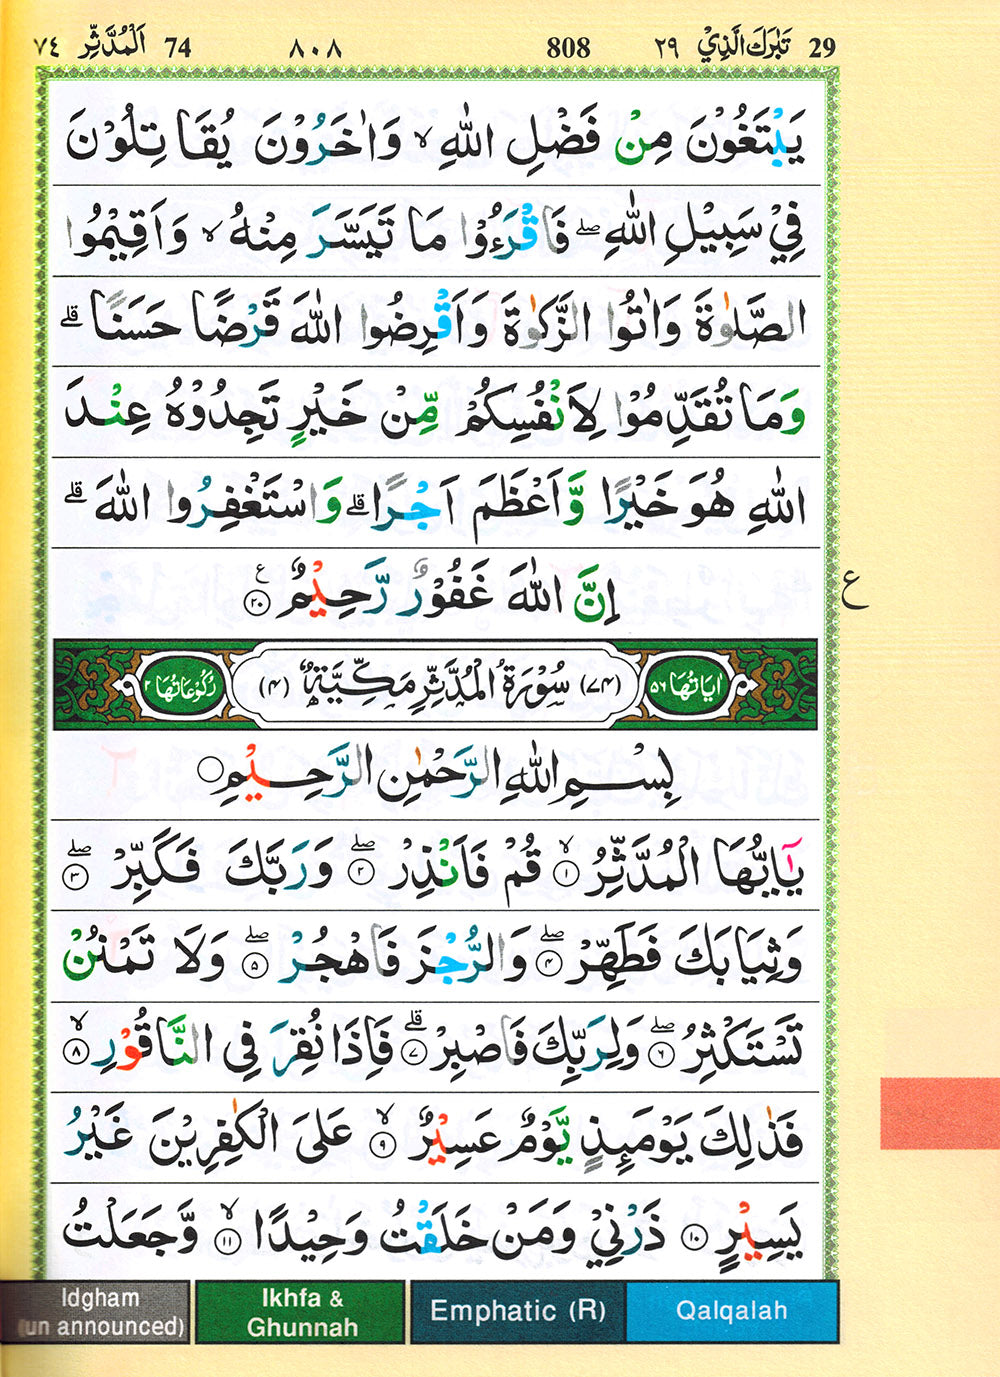 29 تَبٰرَكَ الَّذِيْ ٢٩ 808 ٨٠٨ 74 اَلْمُدَّثِّر ٧٤
يَبْتَغُوْنَ مِنْ فَضْلِ اللّٰهِ ۙ وَاٰخَرُوْنَ يُقَاتِلُوْنَ
فِيْ سَبِيْلِ اللّٰهِ ۖ فَاقْرَءُوْا مَا تَيَسَّرَ مِنْهُ ۙ وَاَقِيْمُوا
الصَّلٰوةَ وَاٰتُوا الزَّكٰوةَ وَاَقْرِضُوا اللّٰهَ قَرْضًا حَسَنًا ۗ
وَمَا تُقَدِّمُوْا لِاَنْفُسِكُمْ مِّنْ خَيْرٍ تَجِدُوْهُ عِنْدَ
اللّٰهِ هُوَ خَيْرًا وَّاَعْظَمَ اَجْرًا ۗ وَاسْتَغْفِرُوا اللّٰهَ ۗ
اِنَّ اللّٰهَ غَفُوْرٌ رَّحِيْمٌ ع ٢٠
ع
اٰيَاتُهَا ٥٦ (٧٤) سُوْرَةُ الْمُدَّثِّرِ مَكِّيَّةٌ (٤) رُكُوْعَاتُهَا ٢
بِسْمِ اللّٰهِ الرَّحْمٰنِ الرَّحِيْمِ
يٰٓاَيُّهَا الْمُدَّثِّرُ ۙ ١ قُمْ فَاَنْذِرْ ۖ ٢ وَرَبَّكَ فَكَبِّرْ ۖ ٣
وَثِيَابَكَ فَطَهِّرْ ۖ ٤ وَالرُّجْزَ فَاهْجُرْ ۖ ٥ وَلَا تَمْنُنْ
تَسْتَكْثِرُ ۖ ٦ وَلِرَبِّكَ فَاصْبِرْ ۗ ٧ فَاِذَا نُقِرَ فِى النَّاقُوْرِ ۙ ٨
فَذٰلِكَ يَوْمَىِٕذٍ يَّوْمٌ عَسِيْرٌ ۙ ٩ عَلَى الْكٰفِرِيْنَ غَيْرُ
يَسِيْرٍ ١٠ ذَرْنِيْ وَمَنْ خَلَقْتُ وَحِيْدًا ۙ ١١ وَّجَعَلْتُ
Idgham
(un announced)
Ikhfa &
Ghunnah
Emphatic (R)
Qalqalah